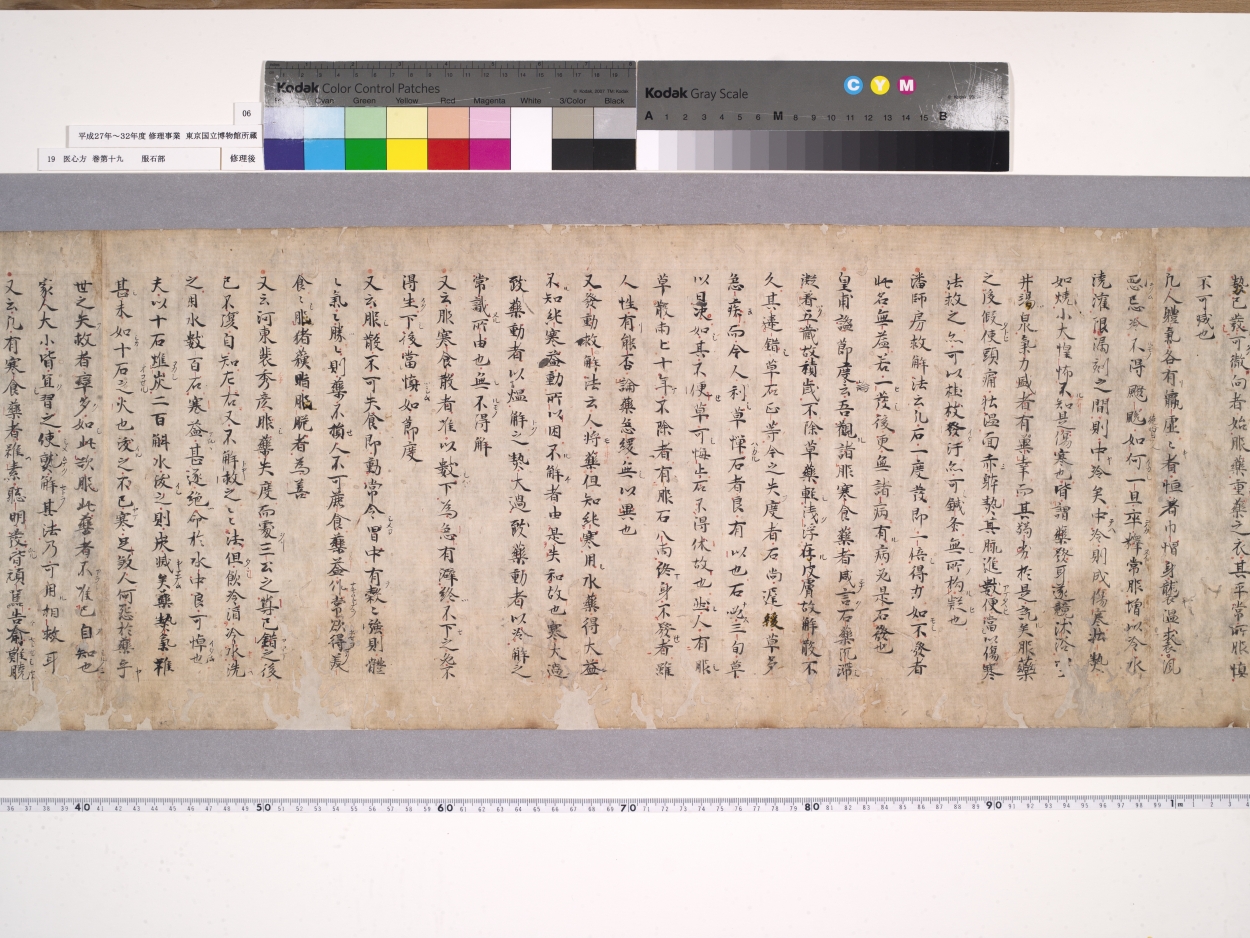 06
平成27年～32年度 修理事業 東京国立博物館所蔵
19 医心方 巻第十九 服石部
修理後
Kodak Color Control Patches
Cyan Green Yellow Red Magenta White 3/Color Black
Kodak Gray Scale
C Y M
A 1 2 3 4 5 6 M 8 9 10 11 12 13 14 15 B
熱已發可徹向者始服藥重藥之衣其平常所服慎
不可減也
凡人體氣各有羸虛々者恒著巾帽身襲溫裘風
惡忌冷不得颸颸如何一旦卒釋常服增以冷水
澆灌限漏刻之間則中冷矣中冷則成傷寒壯熱
如燒小大惶怖不知是傷寒也皆謂藥發耳遂競沃冷
井湯泉氣力盛者有萬幸而其弱劣於是矣服藥
之後假使頭痛壯溫面赤體熱其脈進數便當以傷寒
法救之亦可以杖發汗亦可鍼灸無所拘疑也
潘師房救解法云凡石一度發即一倍得力如不發者
此名無虛若一發後更無諸病有病是石發也
皇甫謐節度云吾觀諸服寒食藥者咸言石藥沉滯
凝着五藏故積歲不除草藥輕浅浮在皮膚故解散不
久其違錯草石正等今之失度者石尚遲緩草多
急疾而今人利草憚石者良有以也石必三旬草
以日決如其不便草可悔止石不得休故也然人有服
草散兩匕十年不除者有服石八兩終身不發者雖
人性有能否論藥急緩無以異也
又發動救解法云人將藥但知純寒用水藥得大益
不知純寒益動所以困不解者由是失和故也寒大過
致藥動者以溫解之熱大過致藥動者以冷解之
常識所由也無不得解
又云服寒食散者唯以數下為急有澼終不下之必不
得生下後當慎如節度
又云服散不可失食即動常令胃中有穀々強則體
々氣々勝々則藥不損人不可蔬食益作常欲得羹
食々肥猪蘓脂肥脆者為善
又云河東裴秀彥服藥失度而處三公之尊已錯之後
已不復自知左右又不解救之々法但飲冷涓冷水洗
之用水數百石寒益甚遂絕命於水中良可悼也
夫以十石燋炭二百斛水沃之則炭滅矣藥熱氣雖
甚未如十石之火也沃之不已寒足殺人何怨於藥乎
世之失救者多如此欲服此藥者不唯已自知也
家人大小皆宜習之使熟解其法乃可用相救耳
又云凡有寒食藥者雖素聰明發皆頑嚚告喻難曉